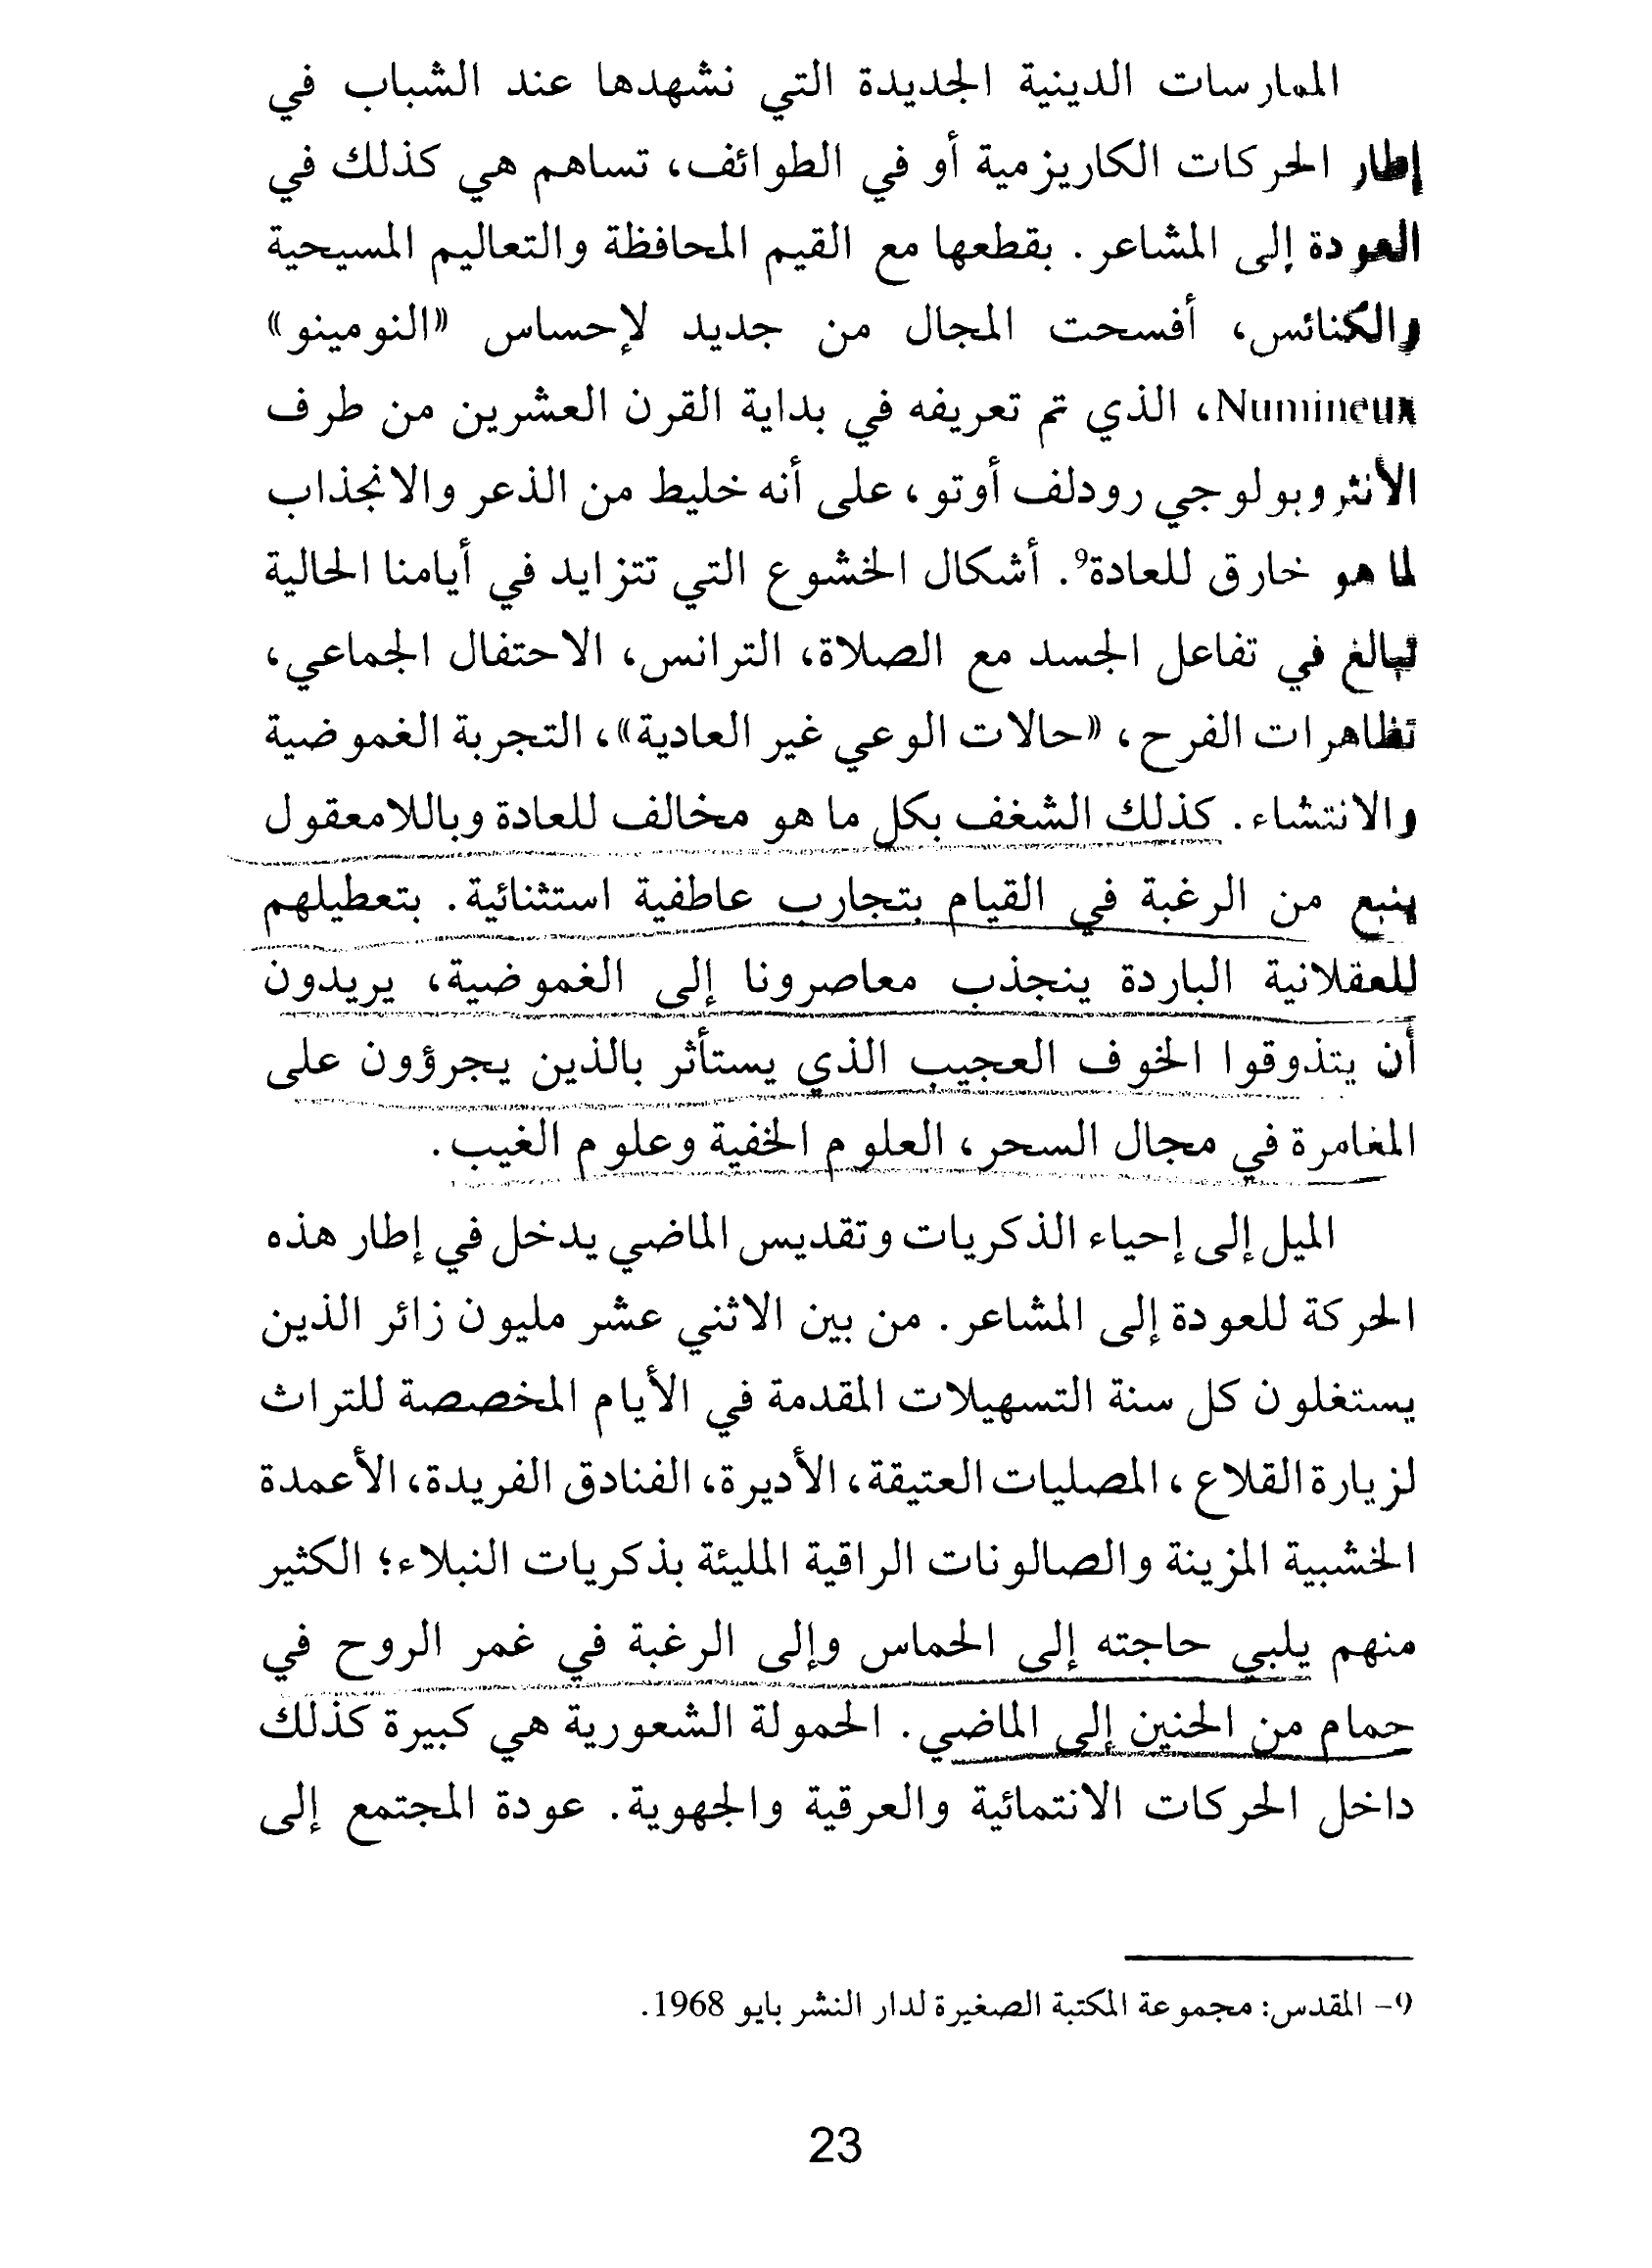 الممارسات الدينية الجديدة التي نشهدها عند الشباب في
إطار الحركات الكاريزمية أو في الطوائف، تساهم هي كذلك في
العودة إلى المشاعر. بقطعها مع القيم المحافظة والتعاليم المسيحية
والكنائس، أفسحت المجال من جديد لإحساس «النومينو»
Numineux، الذي تم تعريفه في بداية القرن العشرين من طرف
الأنثروبولوجي رودلف أوتو، على أنه خليط من الذعر والانجذاب
لما هو خارق للعادة9. أشكال الخشوع التي تتزايد في أيامنا الحالية
تبالغ في تفاعل الجسد مع الصلاة، الترانس، الاحتفال الجماعي،
تظاهرات الفرح، «حالات الوعي غير العادية»، التجربة الغموضية
والانتشاء. كذلك الشغف بكل ما هو مخالف للعادة وباللامعقول
ينبع من الرغبة في القيام بتجارب عاطفية استثنائية. بتعطيلهم
للعقلانية الباردة ينجذب معاصرونا إلى الغموضية، يريدون
أن يتذوقوا الخوف العجيب الذي يستأثر بالذين يجرؤون على
المغامرة في مجال السحر، العلوم الخفية وعلوم الغيب.
الميل إلى إحياء الذكريات وتقديس الماضي يدخل في إطار هذه
الحركة للعودة إلى المشاعر. من بين الاثني عشر مليون زائر الذين
يستغلون كل سنة التسهيلات المقدمة في الأيام المخصصة للتراث
لزيارة القلاع، المصليات العتيقة، الأديرة، الفنادق الفريدة، الأعمدة
الخشبية المزينة والصالونات الراقية المليئة بذكريات النبلاء؛ الكثير
منهم يلبي حاجته إلى الحماس وإلى الرغبة في غمر الروح في
حمام من الحنين إلى الماضي. الحمولة الشعورية هي كبيرة كذلك
داخل الحركات الانتمائية والعرقية والجهوية. عودة المجتمع إلى
9- المقدس: مجموعة المكتبة الصغيرة لدار النشر بايو 1968.
23